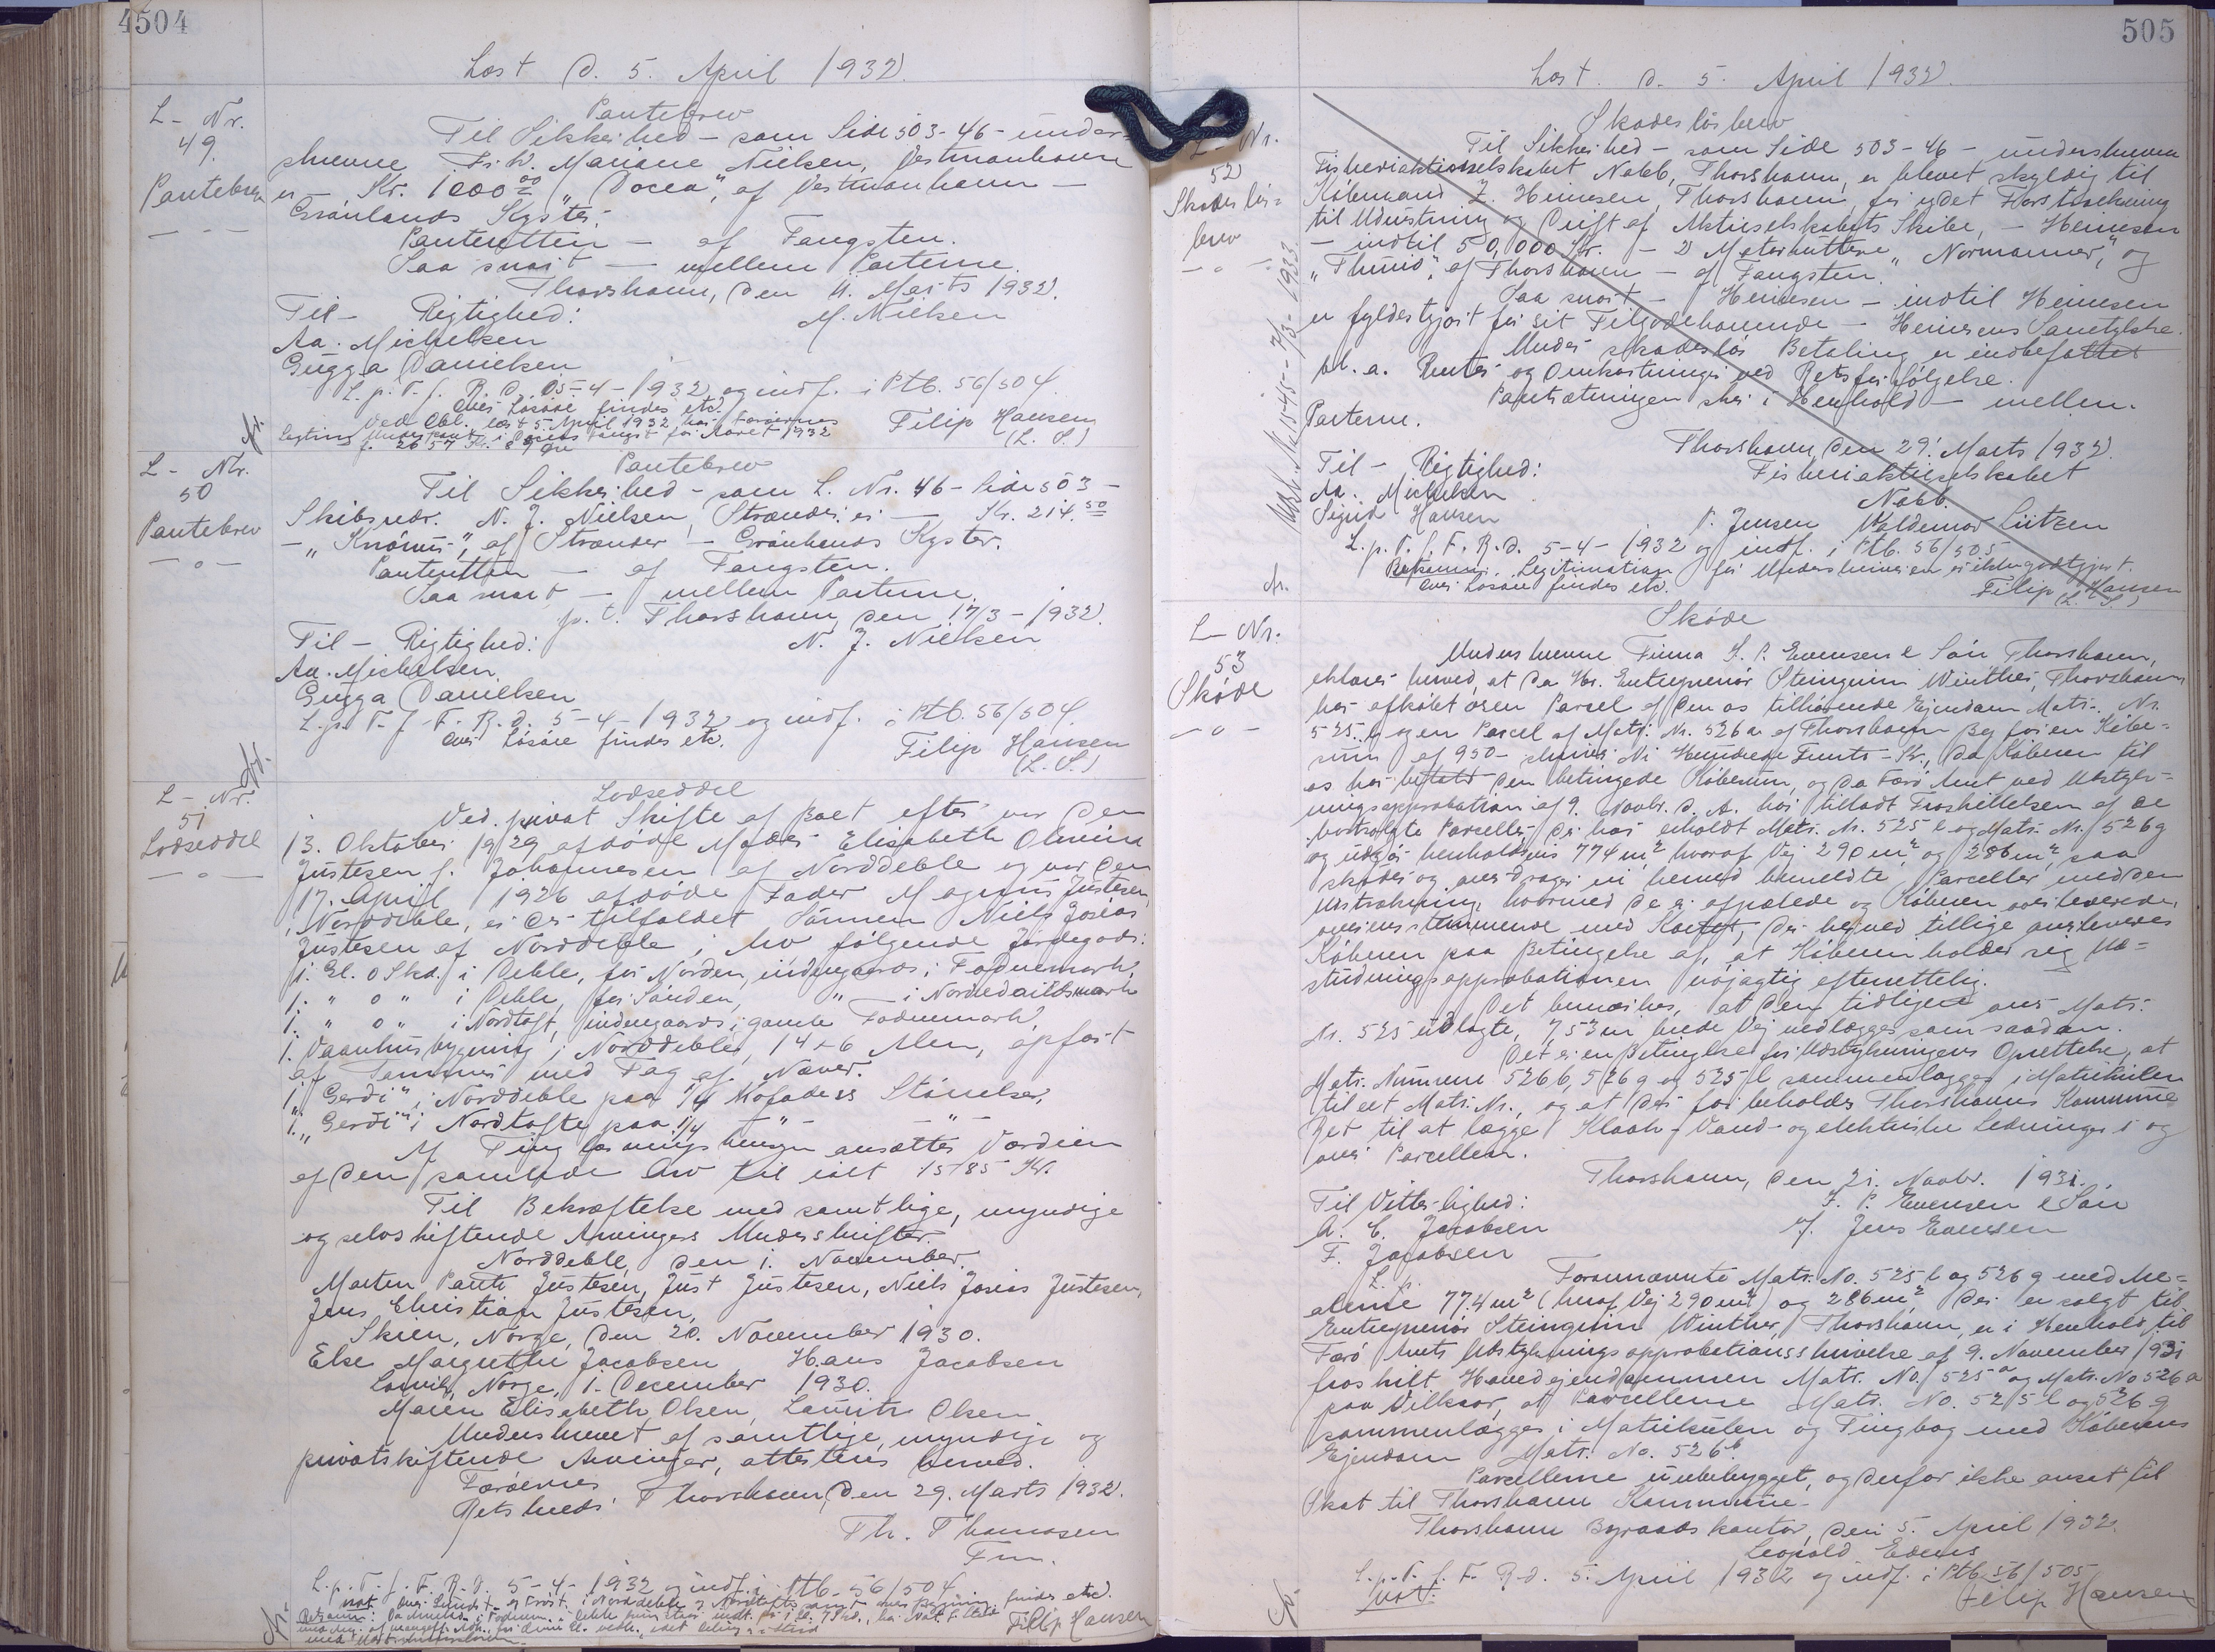 4504
Læst d. 5. April 1932.
L - Nr.
49.
Pantebrev
Pantebrev
Til Sikkerhed - som Side 503-46 - under-
skrevne Fr. W. Mariane Nielsen, Vestmanhavn
er - Kr. 1000 00 " Docea", af Vestmanhavn -
Grønlands Kyster.
Panteretten - af Fangsten.
Saa snart - mellem Parterne.
Thorshavn, den 11. Marts 1932.
Til - Rigtighed: M. Nielsen
Aa. Michelsen
Gugga Danielsen
L. p. T. f. F. R. d. 5-4-1932 og indf. i Ptb. 56/504.
Over Løsøre findes etc.
Ved Obl. læst 5 April 1932 har Færøernes
Lagting Underpant i Fangst for Aaret 1932
f. 2657 Kr. 89 Øre
Filip Hansen
(L. S.)
L - Nr.
50
Pantebrev
Pantebrev
Til Sikkerhed - som L. Nr. 46 - Side 503 -
Skibsredr. N. J. Nielsen, Strænder, er - Kr. 214.50
- " af Strænder - Grønlands Kyster.
Panteretten - af Fangsten.
Saa snart - mellem Parterne.
p. t. Thorshavn, den 17/3 - 1932.
Til - Rigtighed: N. J. Nielsen
Aa. Michelsen
Gugga Danielsen
L. p. T. f. F. R. d. 5-4-1932 og indf. i Ptb. 56/504.
Over Løsøre findes etc.
Filip Hansen
(L. S.)
L - Nr.
51
Lodseddel
Lodseddel
Ved privat Skifte af Boet efter vor den
13. Oktober 1929 afdøde Moder Elisabeth Olevine
Justesen f. Johannesen af Norddeble og vor den
17. April 1926 afdøde Fader Magnus Justesen
, Norddeble, er der tilfaldet Sønnen Niels Josias
Justesen af Norddeble i Arv følgende Jordegods:
1. Gl. 0 Skd. i Deble, for Norden, indengaards i Fodnemark,
1. " 0 " i Deble, for Sønden, " - i Nordedailsmark
1. " 0 " i Nordtoft, indengaards i gamle Fodnemark,
1. Vaanhusbygning i Norddeble, 14 x 6 Alen, opført
af Tømmer med Tag af Næver.
1. "Gerdi" i Norddeble paa 1/4 Kofoders Størrelse,
1. "Gerdi" i Nordtofte paa 1/4 - " - "
Af Tinglæsningshensyn ansættes Værdien
af den samlede Arv til ialt 1585 Kr.
Til Bekræftelse med samtlige, myndige
og selvskiftende Arvingers Underskrifter.
Norddeble, den 1. November.
Morten Pauli Justesen, Just Justesen, Niels Josias Justesen,
Jens Christian Justesen,
Skien, Norge, den 20. November 1930.
Else Margrethe Jacobsen Hans Jacobsen
Larvik, Norge, 1. December 1930.
Maren Elisabeth Olsen, Laurits Olsen
Underskrevet af samtlige, myndige og
privatskiftende Arvinger, attesteres herved.
Færøernes
Retskreds' Thorshavn, den 29. Marts 1932.
Th. Thomasen
Fm.
L. p. T. f. F. R. d. 5-4-1932 og indf. i Ptb. 56/504
Filip Hansen
505
Læst. d. 5. April 1932.
L - Nr.
52
Skadesløs-
brev
7/3-1933
Skadesløsbrev
Til Sikkerhed - som Side 503-46 - underskrevne
Fiskeriaktieselskabet Nabb, Thorshavn, er blevet skyldig til
Købmand Z. Heinesen, Thorshavn, for ydet Forstrækning
til Udrustning og Drift af Aktieselskabets Skibe, - Heinesen
- indtil 50,000 Kr. - 2 Motorkuttere "Normanner", og
"Thurid", af Thorshavn - af Fangsten.
Saa snart - Heinesen - indtil Heinesen
er fyldestgjort for sit Tilgodehavende - Heinesens Samtykke.
Under skadesløs Betaling er indbefattet
bl. a. Renter og Omkostninger ved Retsforfølgelse.
Pantsætningen sker i Henhold - mellem
Parterne.
Thorshavn, den 29. Marts 1932.
Til - Rigtighed: Fiskeriaktieselskabet
Aa. Michelsen Nabb.
Sigrid Hansen P. Jensen Waldemar Lützen
L. p. T. f. F. R. d. 5-4-1932 og indf. i Ptb. 56/505
Retsanm.: Legitimation for Underskriveren er ikke godtgjort.
Over Løsøre findes etc.
Filip Hansen
(L. S.)
L - Nr.
53
Skøde
Skøde
Underskrevne Firma J. P. Evensen & Søn Thorshavn,
erklærer herved, at da Hr. Entreprenør Steingrim Winther, Thorshavn
har afkøbt os en Parcel af den os tilhørende Ejendom Matr. Nr.
525 a og en Parcel af Matr. Nr. 526 a af Thorshavn By for en Købe-
sum af 950 - skriver Ni Hundrede Femti - Kr., da Køberen til
os har betalt den betingede Købesum, og da Færø Amt ved Udstyk-
ningsapprobation af 9. Novbr. d. A. har tilladt Fraskillelsen af de
bortsolgte Parceller, der har erholdt Matr. Nr. 525 l og Matr. Nr. 526 g
og udgør henholdsvis 774 m², hvoraf Vej 290 m², og 286 m², saa
skøder og overdrager vi herved bemeldte Parceller med den
Udstrækning, hvormed de er afpælede og Køberen overleverede,
overensstemmende med Kortet, der herved tillige overleveres
Køberen paa Betingelse af, at Køberen holder sig Ud-
stykningsapprobationen nøjagtig efterrettelig.
Det bemærkes, at den tidligere over Matr.
Nr. 525 udlagte, 7,53 m brede Vej nedlægges som saadan.
Det er en Betingelse for Udstykningens Oprettelse, at
Matr. Numrene 526 b, 526 g og 525 l sammenlægges i Matrikulen
til eet Matr. Nr., og at der forbeholdes Thorshavns Kommune
Ret til at lægge Kloak-, Vand- og elektriske Ledninger i og
over Parcellen.
Thorshavn, den 21. Novbr. 1931.
Til Vitterlighed: J. P. Evensen & Søn
A. C. Jacobsen v/ Jens Evensen
F. Jacobsen
Foranævnte Matr. No. 525 l og 526 g med Are-
alerne 774 m² (heraf Vej 290 m²) og 286 m², der er solgt til
Entreprenør Steingrim Winther, Thorshavn, er i Henhold til
Færø Amts Udstykningsapprobationsskrivelse af 9. November 1931
fraskilt Hovedejendommen Matr. No. 525 a og Matr. No 526 a
paa Vilkaar, at Parcellerne Matr. No. 525 l og 526 g
sammenlægges i Matrikulen og Tingbog med Køberens
Ejendom Matr. No. 526 b
Parcellerne er ubebygget, og derfor ikke ansat til
Skat til Thorshavn Kommune.
Thorshavn Byraads kontor, den 5. April 1932.
L. p. T. f. F. R. d. 5. April 1932 og indf. i Ptb 56/505
Filip Hansen